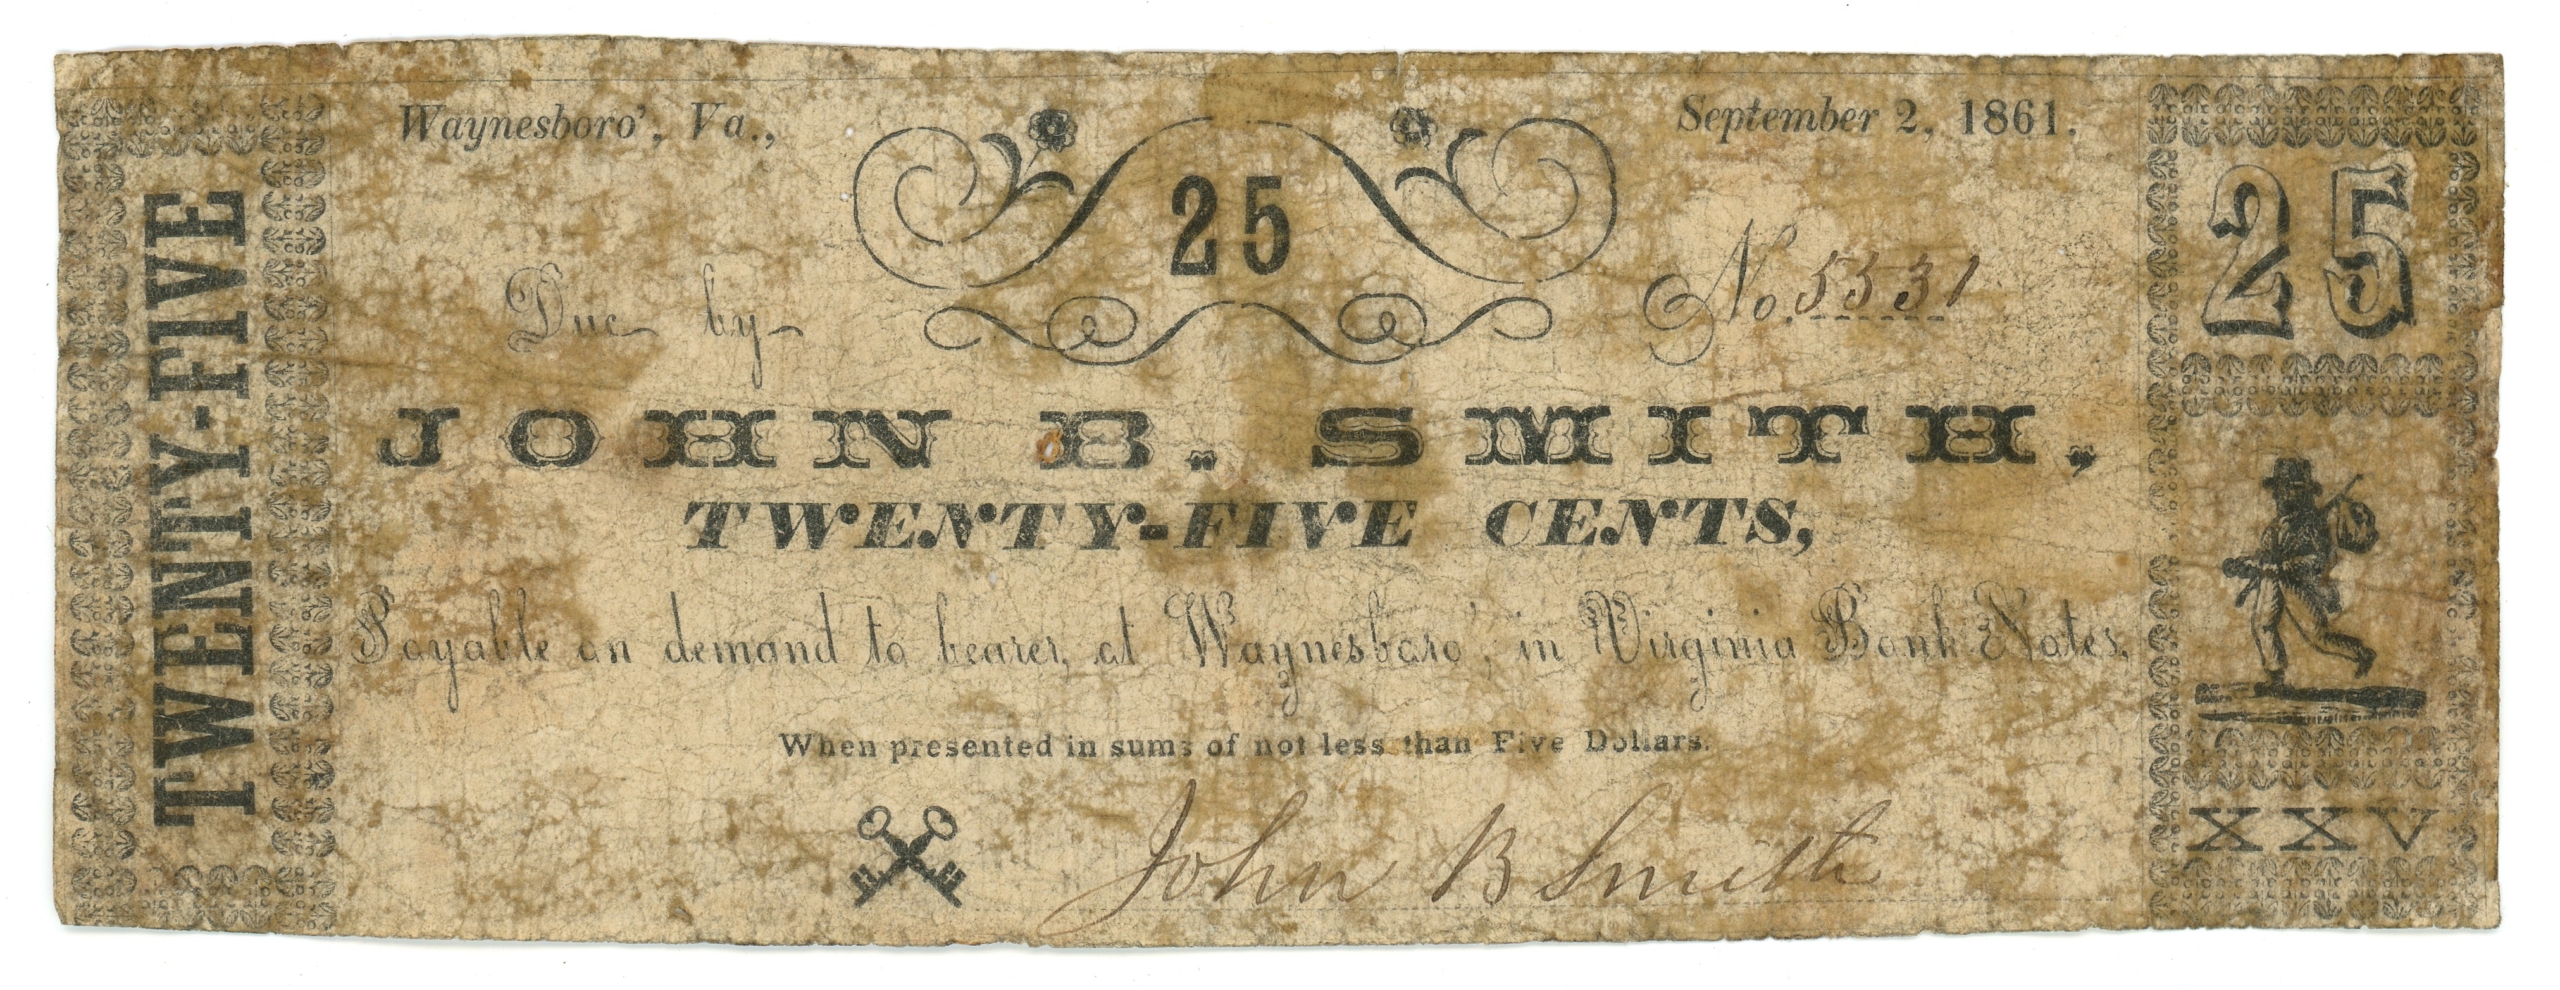 TWENTY-FIVE
Waynesboro', Va.,
September 2, 1861.
25
25
Due by
No. 5531
JOHN B. SMITH,
TWENTY-FIVE CENTS,
Payable on demand to bearer, at Waynesboro', in Virginia Bank Notes,
When presented in sums of not less than Five Dollars.
XXV
John B Smith